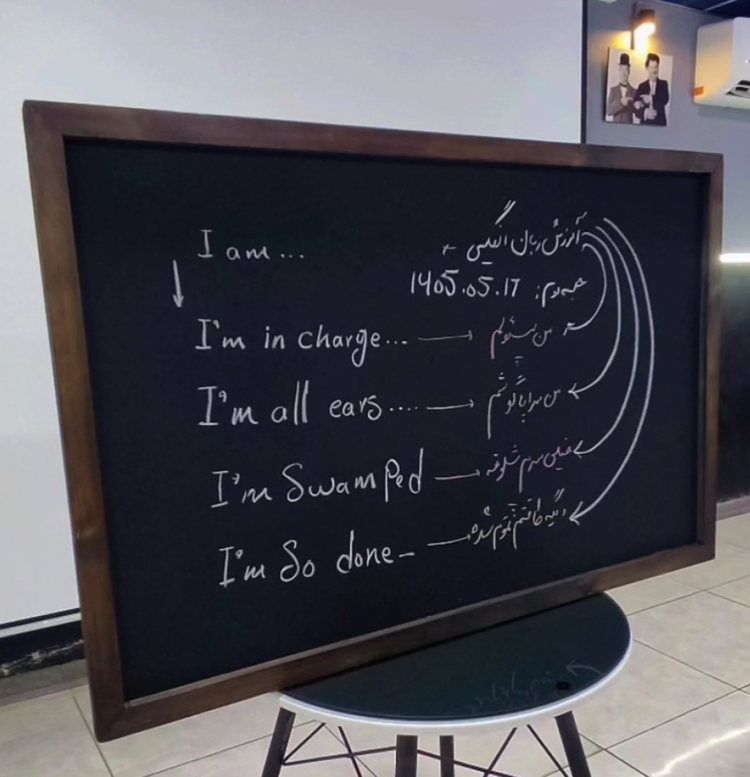 I am...
آموزش زبان انگلیسی
جلسه دوم: 1405.05.17
I'm in charge... → من مسئولم
I'm all ears.... → من سراپا گوشم
I'm Swamped → خیلی سرم شلوغه
I'm So done → دیگه طاقتم تموم شده